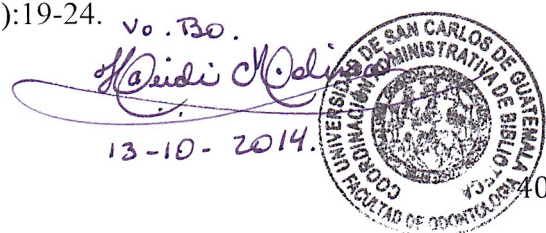 ):19-24.
Vo. Bo.
Heidi Molina
13-10-2014.
UNIVERSIDAD DE SAN CARLOS DE GUATEMALA
COORDINACION ADMINISTRATIVA DE BIBLIOTECA
FACULTAD DE ODONTOLOGIA
40